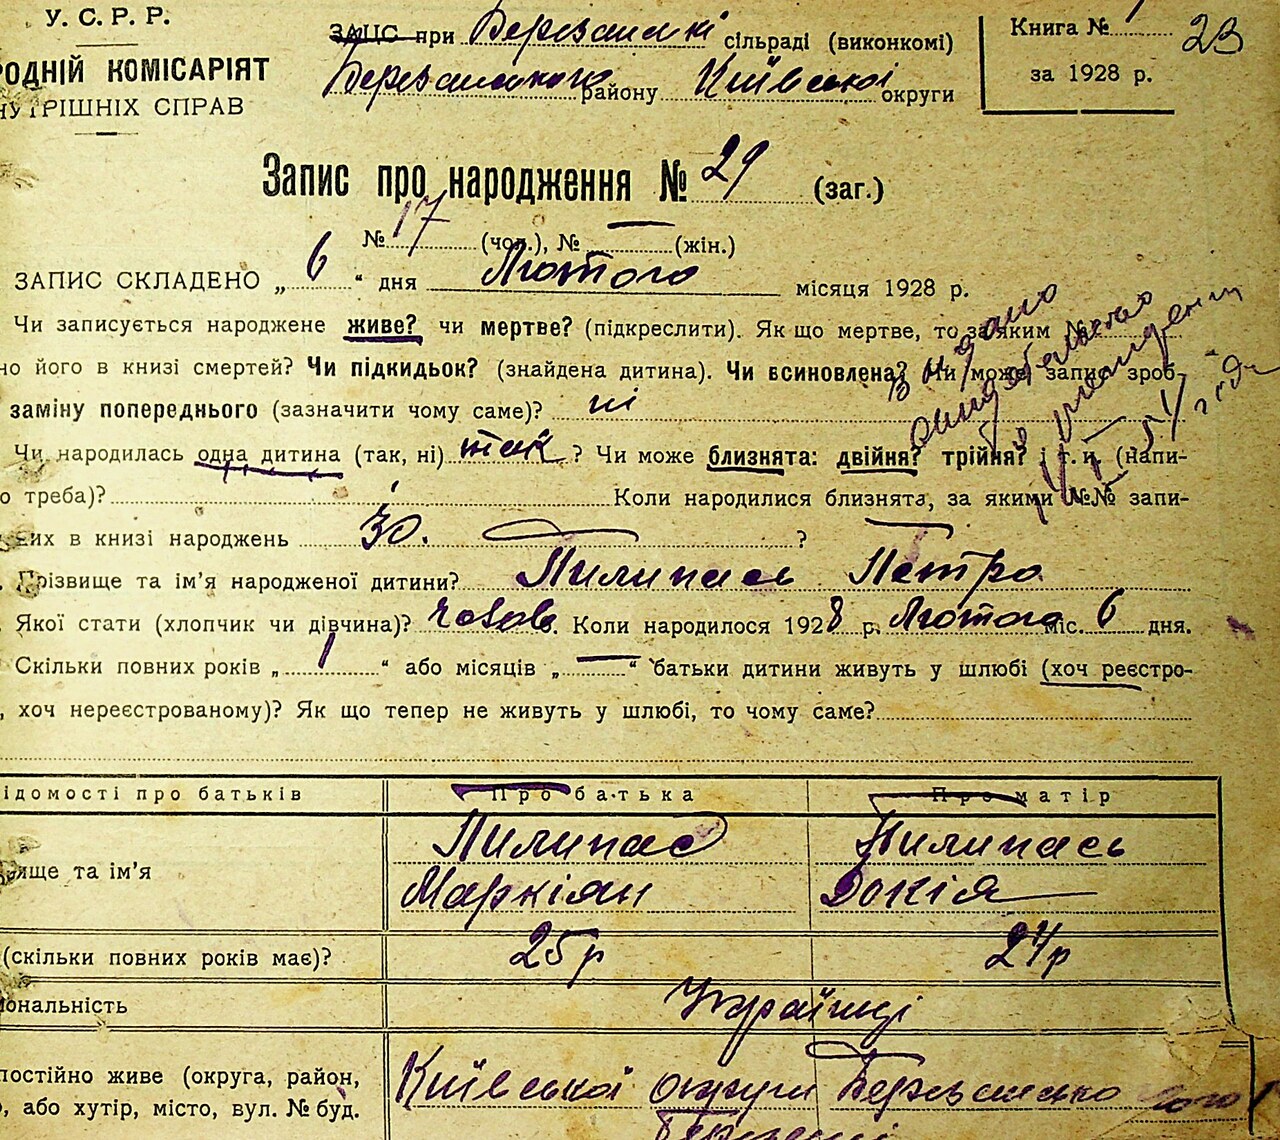 У. С. Р. Р.
РОДНІЙ КОМІСАРІЯТ
НУТРІШНІХ СПРАВ
ЗАЦС при Березанській сільраді (виконкомі)
Березанського району Київської округи
Книга № 1
за 1928 р.
23
Запис про народження № 29 (заг.)
№ 17 (чол.), № — (жін.)
ЗАПИС СКЛАДЕНО „ 6 “ дня Лютого місяця 1928 р.
Чи записується народжене живе? чи мертве? (підкреслити). Як що мертве, то за яким №
но його в книзі смертей? Чи підкидьок? (знайдена дитина). Чи всиновлена? Чи може запис зроб-
заміну попереднього (зазначити чому саме)? ні
Чи народилась одна дитина (так, ні) так ? Чи може близнята: двійня? трійня? і т. и. (напи-
о треба)? Коли народилися близнята, за якими №№ запи-
их в книзі народжень 30. ?
Прізвище та ім’я народженої дитини? Пилипась Петро
Якої стати (хлопчик чи дівчина)? Коли народилося 1928 р. Лютого міс. 6 дня.
Скільки повних років „ 1 “ або місяців „ — “ батьки дитини живуть у шлюбі (хоч реєстро-
, хоч нереєстрованому)? Як що тепер не живуть у шлюбі, то чому саме?
ідомості про батьків Про батька Про матір
вище та ім’я Пилипас Пилипась
Маркіян Докія
(скільки повних років має)? 25 р 24 р
іональність Українці
постійно живе (округа, район, Київської округи Березансько
, або хутір, місто, вул. № буд.